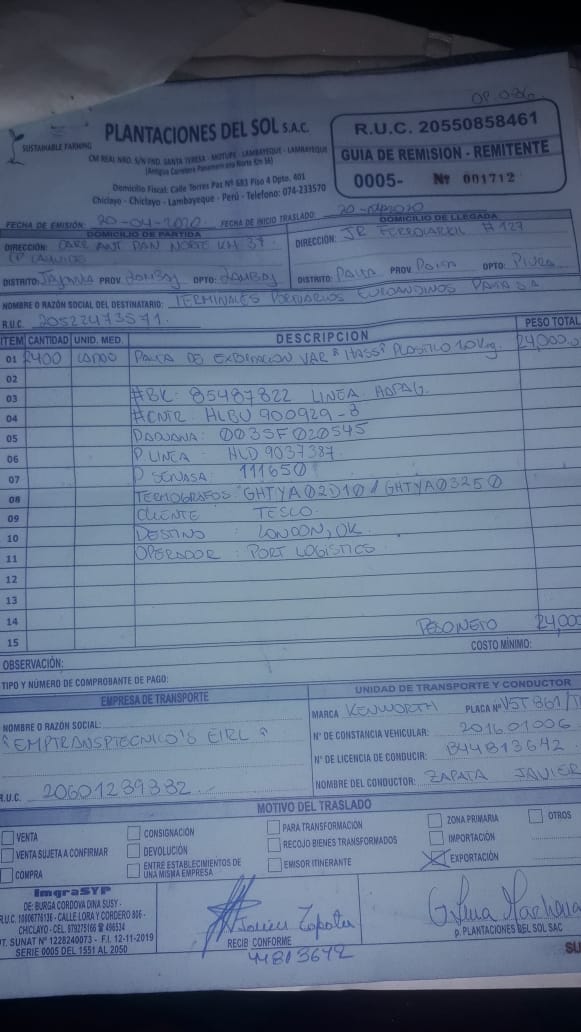 OP. 036
SUSTAINABLE FARMING
PLANTACIONES DEL SOL S.A.C.
CM REAL NRO. S/N FND. SANTA TERESA - MOTUPE - LAMBAYEQUE - LAMBAYEQUE
(Antigua Carretera Panamericana Norte Km 56)
Domicilio Fiscal: Calle Torres Paz Nº 683 Piso 4 Dpto. 401
Chiclayo - Chiclayo - Lambayeque - Perú - Telefono: 074-233570
R.U.C. 20550858461
GUIA DE REMISION - REMITENTE
0005- Nº 001712
FECHA DE EMISIÓN: 20-04-2020 FECHA DE INICIO TRASLADO:
DOMICILIO DE PARTIDA
DIRECCIÓN: CARR ANT PAN NORTE KM 37
DISTRITO: JAYANCA PROV. LAMBAY DPTO: LAMBAY
DOMICILIO DE LLEGADA
DIRECCIÓN: JR FERROCARRIL # 127
DISTRITO: PAITA PROV PAITA DPTO: PIURA
NOMBRE O RAZÓN SOCIAL DEL DESTINATARIO: TERMINALES PORTUARIOS EUROANDINOS PAITA SA
R.U.C. 20522473571
ITEM CANTIDAD UNID. MED. DESCRIPCION PESO TOTAL
01 2400 PALTA DE EXPORTACION VAR "HASS" PLASTICO 10 Kg. 24,000.0
02
03 #BK: 85487822 LINEA HAPAG.
04 #CNTR: HLBU 900929-8
05 P ADUANA: 003SF020545
06 P. LINEA: HLD 9037387
07 P SENASA: 111650
08 TERMOGRAFOS: GHTYA02D10 / GHTYA03250
09 CLIENTE TESCO
10 DESTINO LONDON, UK
11 OPERADOR: PORT LOGISTICS
12
13
14 PESO NETO 24,000
15
COSTO MÍNIMO:
OBSERVACIÓN:
TIPO Y NÚMERO DE COMPROBANTE DE PAGO:
EMPRESA DE TRANSPORTE
NOMBRE O RAZÓN SOCIAL:
"EMPTRANSPTECNICO'S EIRL"
R.U.C. 20601239332
UNIDAD DE TRANSPORTE Y CONDUCTOR
MARCA KENWORTH PLACA Nº V5T 861/
Nº DE CONSTANCIA VEHICULAR: 201601006
Nº DE LICENCIA DE CONDUCIR: B44813642
NOMBRE DEL CONDUCTOR: ZAPATA JAVIER
MOTIVO DEL TRASLADO
VENTA
VENTA SUJETA A CONFIRMAR
COMPRA
CONSIGNACIÓN
DEVOLUCIÓN
ENTRE ESTABLECIMIENTOS DE UNA MISMA EMPRESA
PARA TRANSFORMACIÓN
RECOJO BIENES TRANSFORMADOS
EMISOR ITINERANTE
ZONA PRIMARIA
IMPORTACIÓN
EXPORTACIÓN
OTROS
ImgraSYP
DE: BURGA CORDOVA DINA SUSY -
R.U.C. 10806776136 - CALLE LORA Y CORDERO 806 -
CHICLAYO - CEL. 979275166 ☎ 496534
UT. SUNAT Nº 1228240073 - F.I. 12-11-2019
SERIE 0005 DEL 1551 AL 2050
Javier Zapata
RECIBI CONFORME
44813642
p. PLANTACIONES DEL SOL SAC
SU